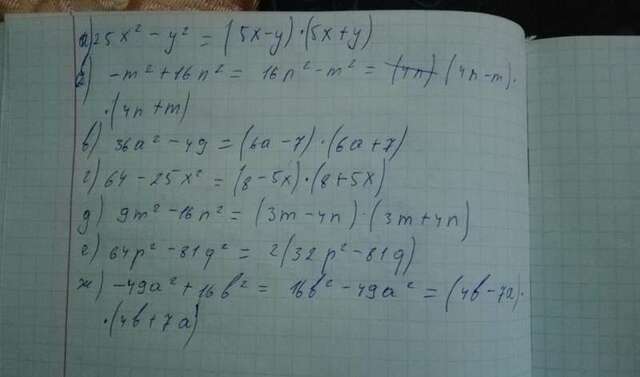 а) 25x² - y² = (5x-y)·(5x+y)
б) -m² + 16n² = 16n² - m² = (4n) (4n-m)·
·(4n+m)
в) 36a² - 49 = (6a-7)·(6a+7)
г) 64 - 25x² = (8-5x)·(8+5x)
д) 9m² - 16n² = (3m-4n)·(3m+4n)
е) 64p² - 81q² = 2(32p² - 81q)
ж) -49a² + 16b² = 16b² - 49a² = (4b-7a)·
·(4b+7a)